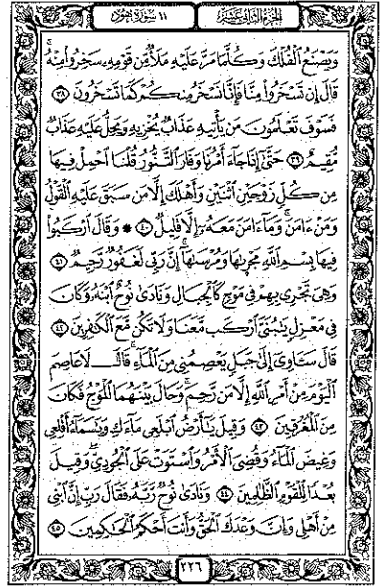 الجزء الثاني عشر
١١ سورة هود
وَيَصْنَعُ ٱلْفُلْكَ وَكُلَّمَا مَرَّ عَلَيْهِ مَلَأٌ مِّن قَوْمِهِۦ سَخِرُوا۟ مِنْهُ ۚ
قَالَ إِن تَسْخَرُوا۟ مِنَّا فَإِنَّا نَسْخَرُ مِنكُمْ كَمَا تَسْخَرُونَ ٣٨
فَسَوْفَ تَعْلَمُونَ مَن يَأْتِيهِ عَذَابٌ يُخْزِيهِ وَيَحِلُّ عَلَيْهِ عَذَابٌ
مُّقِيمٌ ٣٩ حَتَّىٰٓ إِذَا جَآءَ أَمْرُنَا وَفَارَ ٱلتَّنُّورُ قُلْنَا ٱحْمِلْ فِيهَا
مِن كُلٍّ زَوْجَيْنِ ٱثْنَيْنِ وَأَهْلَكَ إِلَّا مَن سَبَقَ عَلَيْهِ ٱلْقَوْلُ
وَمَنْ ءَامَنَ ۚ وَمَآ ءَامَنَ مَعَهُۥٓ إِلَّا قَلِيلٌ ٤٠ * وَقَالَ ٱرْكَبُوا۟
فِيهَا بِسْمِ ٱللَّهِ مَجْر۪ىٰهَا وَمُرْسَىٰهَآ ۚ إِنَّ رَبِّى لَغَفُورٌ رَّحِيمٌ ٤١
وَهِىَ تَجْرِى بِهِمْ فِى مَوْجٍ كَٱلْجِبَالِ وَنَادَىٰ نُوحٌ ٱبْنَهُۥ وَكَانَ
فِى مَعْزِلٍ يَٰبُنَىَّ ٱرْكَب مَّعَنَا وَلَا تَكُن مَّعَ ٱلْكَٰفِرِينَ ٤٢
قَالَ سَـَٔاوِىٓ إِلَىٰ جَبَلٍ يَعْصِمُنِى مِنَ ٱلْمَآءِ ۚ قَالَ لَا عَاصِمَ
ٱلْيَوْمَ مِنْ أَمْرِ ٱللَّهِ إِلَّا مَن رَّحِمَ ۚ وَحَالَ بَيْنَهُمَا ٱلْمَوْجُ فَكَانَ
مِنَ ٱلْمُغْرَقِينَ ٤٣ وَقِيلَ يَٰٓأَرْضُ ٱبْلَعِى مَآءَكِ وَيَٰسَمَآءُ أَقْلِعِى
وَغِيضَ ٱلْمَآءُ وَقُضِىَ ٱلْأَمْرُ وَٱسْتَوَتْ عَلَى ٱلْجُودِىِّ ۖ وَقِيلَ
بُعْدًا لِّلْقَوْمِ ٱلظَّٰلِمِينَ ٤٤ وَنَادَىٰ نُوحٌ رَّبَّهُۥ فَقَالَ رَبِّ إِنَّ ٱبْنِى
مِنْ أَهْلِى وَإِنَّ وَعْدَكَ ٱلْحَقُّ وَأَنتَ أَحْكَمُ ٱلْحَٰكِمِينَ ٤٥
٢٢٦